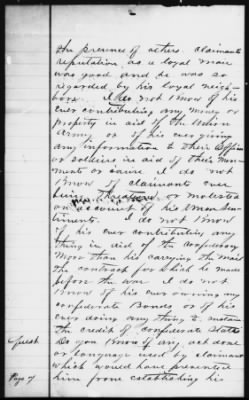 the presence of others. claimants
reputation, as a loyal man
was good and he was so
regarded by his loyal neigh-
bors. I do not know of his
ever contributing any money or
property in aid of the Union
Army or of his ever giving
any information to their officers
or soldiers in aid of their move-
ments or cause I do not
know of claimants ever
being threatened or molested
on account of his Union sen-
timents. I do not know
of his ever contributing any
thing in aid of the confederacy
more than his carrying the mail
the contract for which he made
before the war. I do not
know of his ever owning any
confederate Bonds or of his
ever doing any thing to sustain
the credit of confederate States
Quest Do you know of any act done
or language used by claimant
which would have prevented
Page 7 him from establishing his